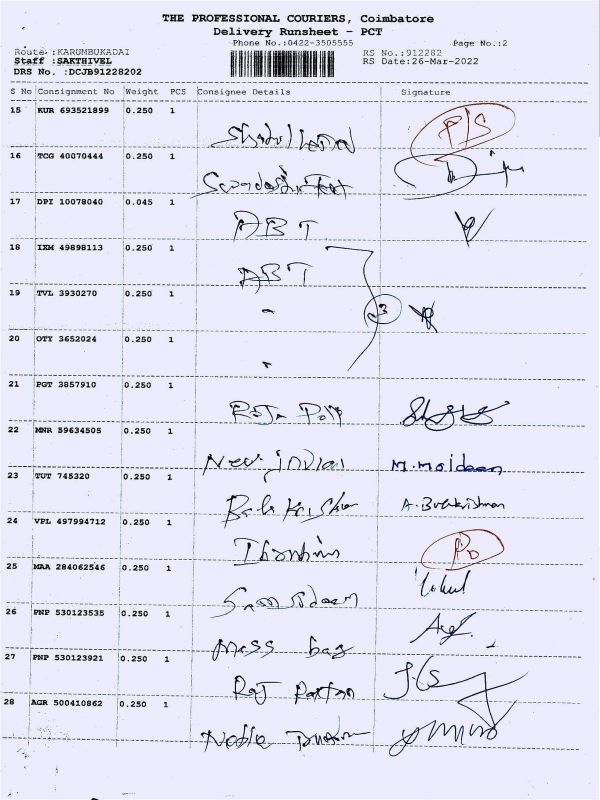 THE PROFESSIONAL COURIERS, Coimbatore
Delivery Runsheet - PCT
Phone No.:0422-3505555 Page No.:2
Route :KARUMBUKADAI RS No.:912282
Staff :SAKTHIVEL RS Date:26-Mar-2022
DRS No. :DCJB91228202
S No Consignment No Weight PCS Consignee Details Signature
15 KUR 693521899 0.250 1
P/S
16 TCG 40070444 0.250 1
17 DPI 10078040 0.045 1
ABT
18 IXM 49898113 0.250 1
ABT
19 TVL 3930270 0.250 1
3
20 OTY 3652024 0.250 1
21 PGT 3857910 0.250 1
Raja
22 MNR 59634505 0.250 1
New India M. Moideen
23 TUT 745320 0.250 1
Bala Krishna A. Balakrishnan
24 VPL 497994712 0.250 1
PD
25 MAA 284062546 0.250 1
26 PNP 530123535 0.250 1
Mass bag
27 PNP 530123921 0.250 1
Raj
28 AGR 500410862 0.250 1
Noble